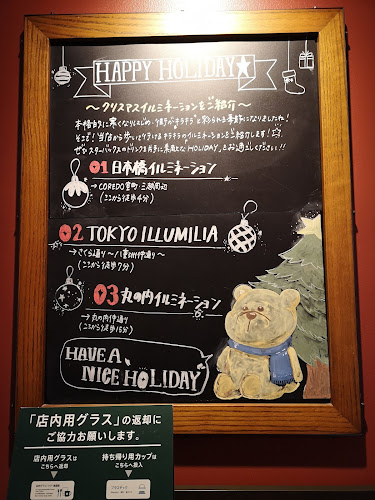 HAPPY HOLIDAY★
～クリスマスイルミネーションをご紹介～
本格的に寒くなりはじめ、街が"キラキラ"と彩られる季節になりましたね!
そこで!当店から歩いて行けるキラキラのイルミネーションをご紹介します!
ぜひスターバックスのドリンクを片手に素敵な HOLIDAY をお過ごしください!!
01 日本橋イルミネーション
→ COREDO室町・三越周辺
(ここから徒歩4分)
02 TOKYO ILLUMILIA
→ さくら通り～八重洲仲通り
(ここから徒歩7分)
03 丸の内イルミネーション
→ 丸の内仲通り
(ここから徒歩15分)
HAVE A
NICE HOLIDAY
「店内用グラス」の返却に
ご協力お願いします。
店内用グラスは
こちらへ返却
持ち帰り用カップは
こちらへ投入